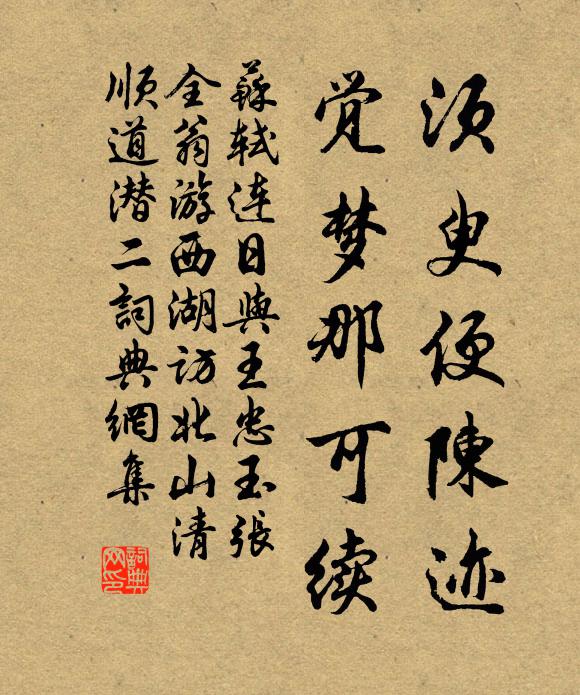 须臾便陳迹
觉梦那可续
蘇轼连日與王忠玉張
全翁游西湖访北山清
顺道潜二詞典網集
詞典
网印